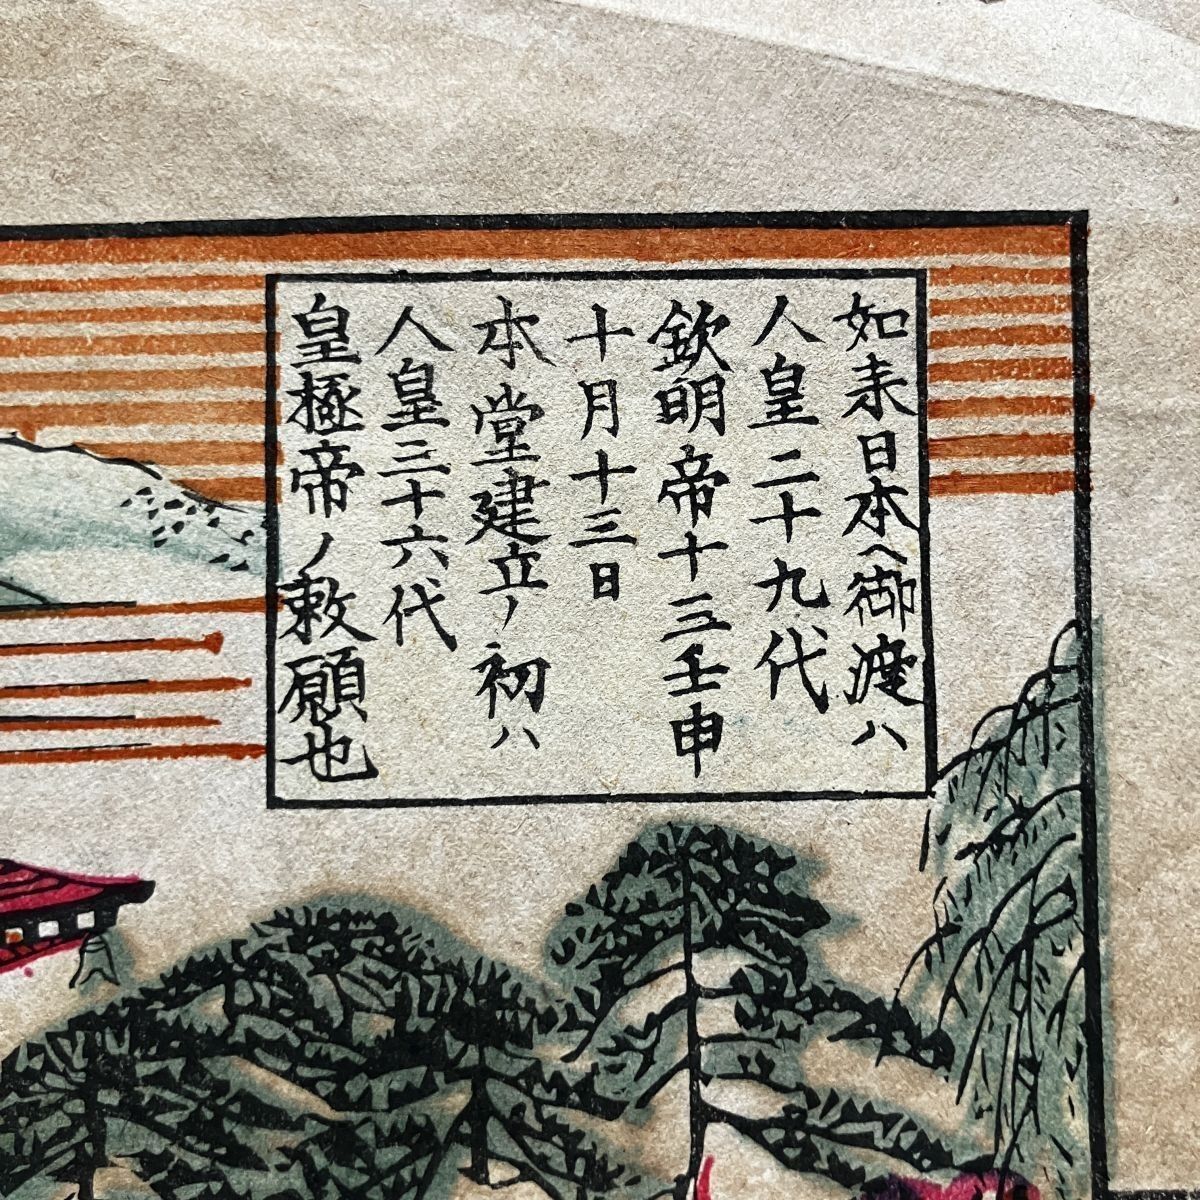 如来日本へ御渡ハ
人皇二十九代
欽明帝十三壬申
十月十三日
本堂建立ノ初ハ
人皇三十六代
皇極帝ノ敕願也